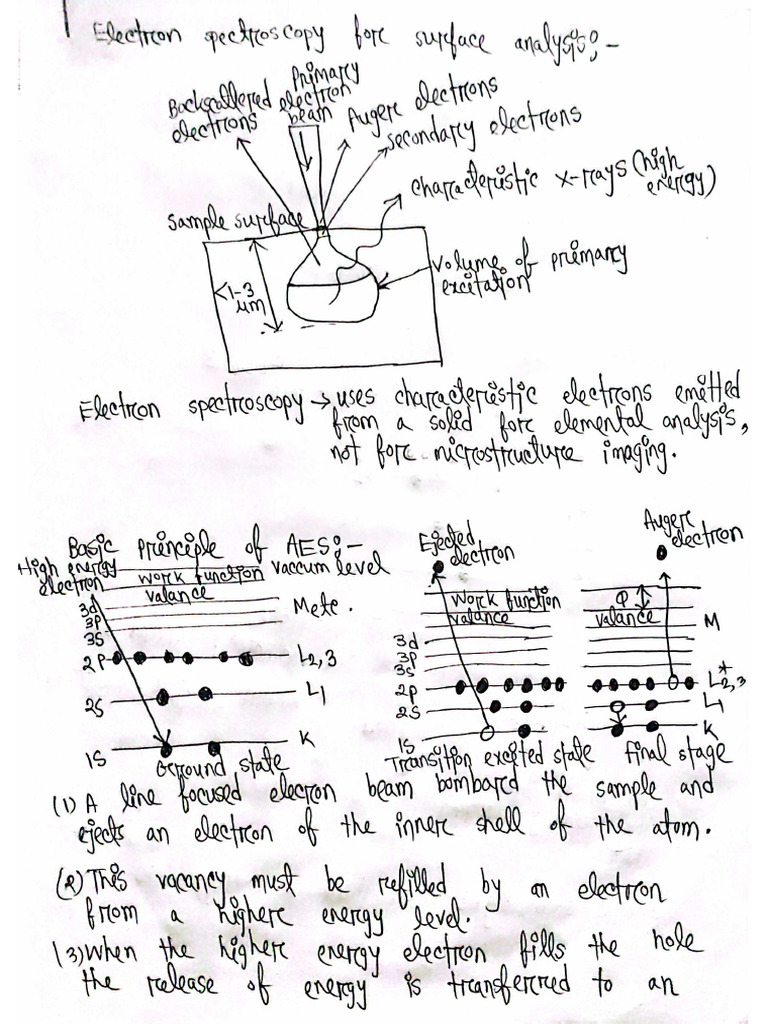 Electron spectroscopy fore surface analysis:-
Backscattered electrons
Primary electron beam
Augere electrons
secondary electrons
characteristic x-rays (high energy)
Sample surface
<1-3 μm
volume of primary excitation
Electron spectroscopy → uses characteristic electrons emitted
from a solid fore elemental analysis,
not fore microstructure imaging.
Basic Principle of AES:-
High energy electron
work function
vaccum level
valance
3d
3p
3s
2p
2s
1s
Metc.
L2,3
L1
K
Ground state
Ejected electron
Work function
valance
3d
3p
3s
2p
2s
1s
Transition excited state
Augere electron
φ
valance
M
L2,3*
L1
K
Final stage
(1) A line focused electron beam bombard the sample and
ejects an electron of the inner shell of the atom.
(2) This vacancy must be refilled by an electron
from a highere energy level.
(3) When the highere energy electron fills the hole
the release of energy is transferred to an